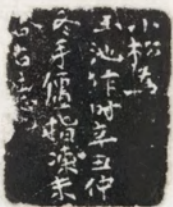 小松為
玉池作时辛丑仲
冬手僵指凍未